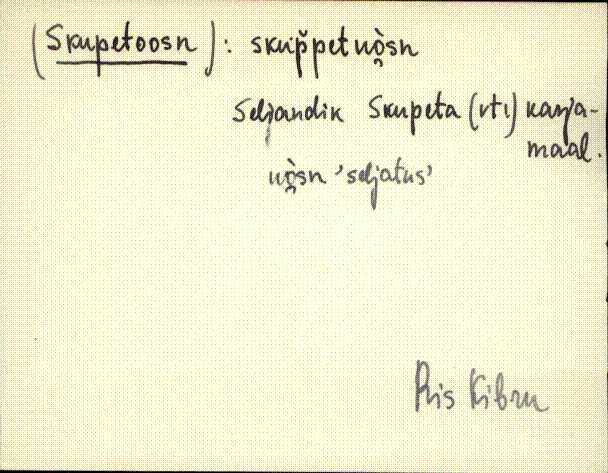 (Skupetoosn): skup̆petuò̭sn
Seljandik Skupeta (vt.) karja-
maal.
uò̭sn 'seljatus'
Pis Kibru